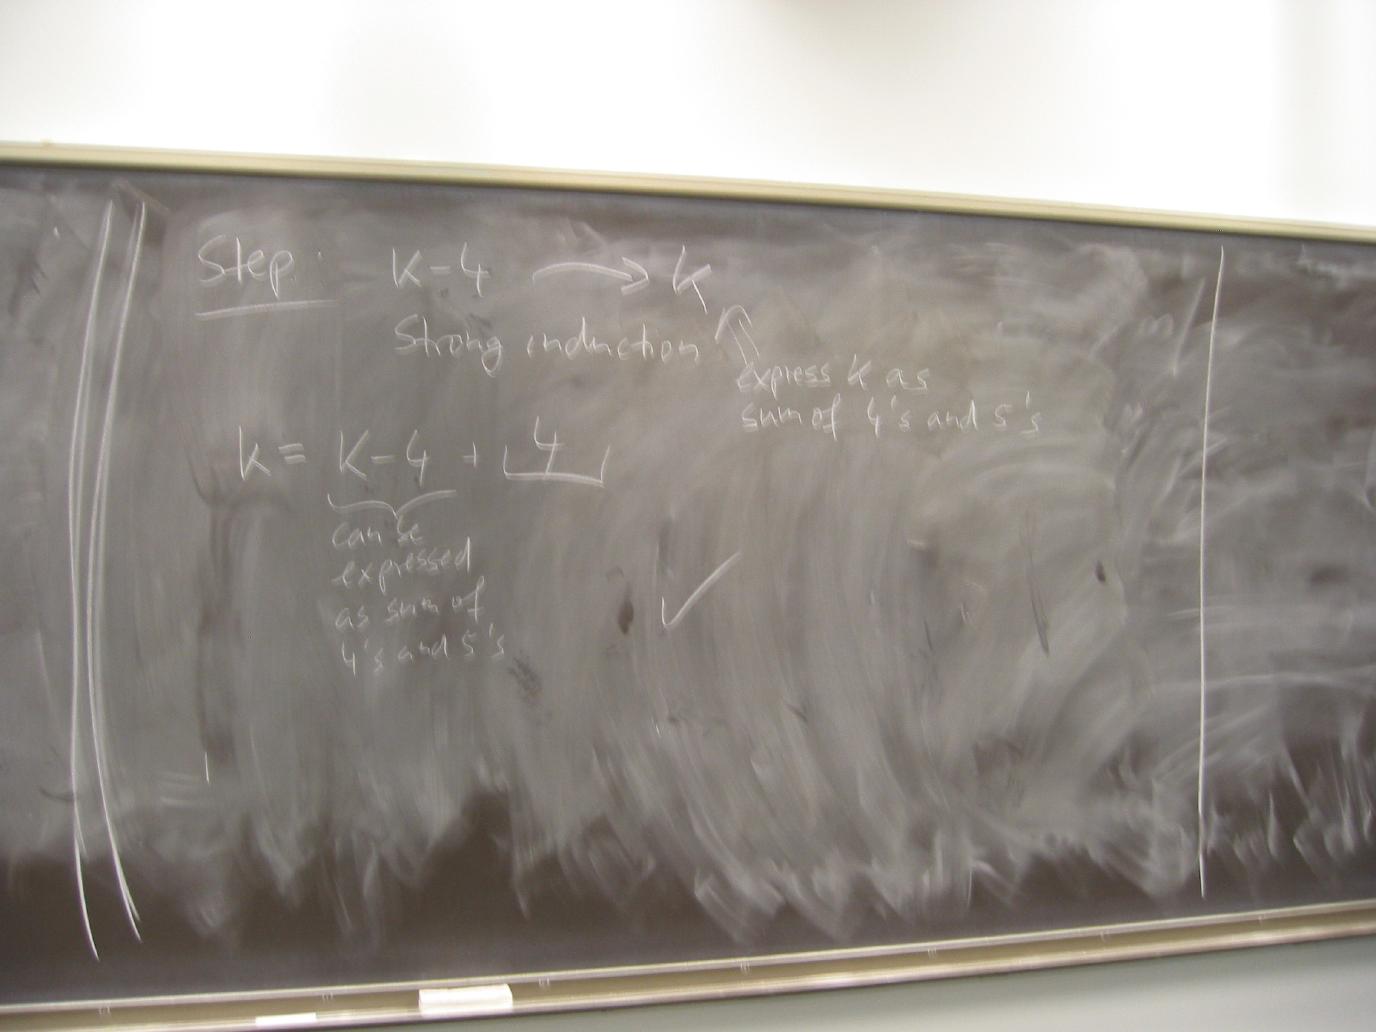 Step: K-4 → k
Strong induction
express k as
sum of 4's and 5's
k = K-4 + 4
can be
expressed
as sum of
4's and 5's